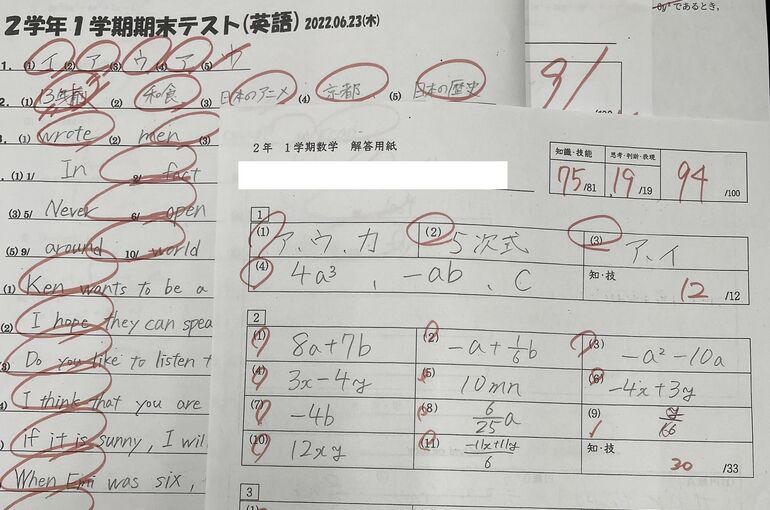 2学年1学期期末テスト(英語) 2022.06.23(木)
1. (1) イ (2) ア (3) ウ (4) ア (5) ウ
(2) 和食 (3) 日本のアニメ (4) 京都 (5) 日本の歴史
(1) wrote (2) men (3)
(1) 1/ In 2/ fact
(3) 5/ Never 6/ open
(5) 9/ around 10/ world
(1) Ken wants to be a
(2) I hope they can spea
Do you like to listen t
I think that you are
If it is sunny, I wil
When Emi was six,
であるとき,
91
2年 1学期数学 解答用紙
知識・技能 思考・判断・表現
75/81 19/19 94/100
1
(1) ア、ウ、カ (2) 5次式 (3) ア、イ
(4) 4a³、-ab、C 知・技 12/12
2
(1) 8a+7b (2) -a+1/6b (3) -a²-10a
(4) 3x-4y (5) 10mn (6) -4x+3y
(7) -4b (8) 6/25a (9)
(10) 12xy (11) -11x+11y/6 知・技 30/33
3